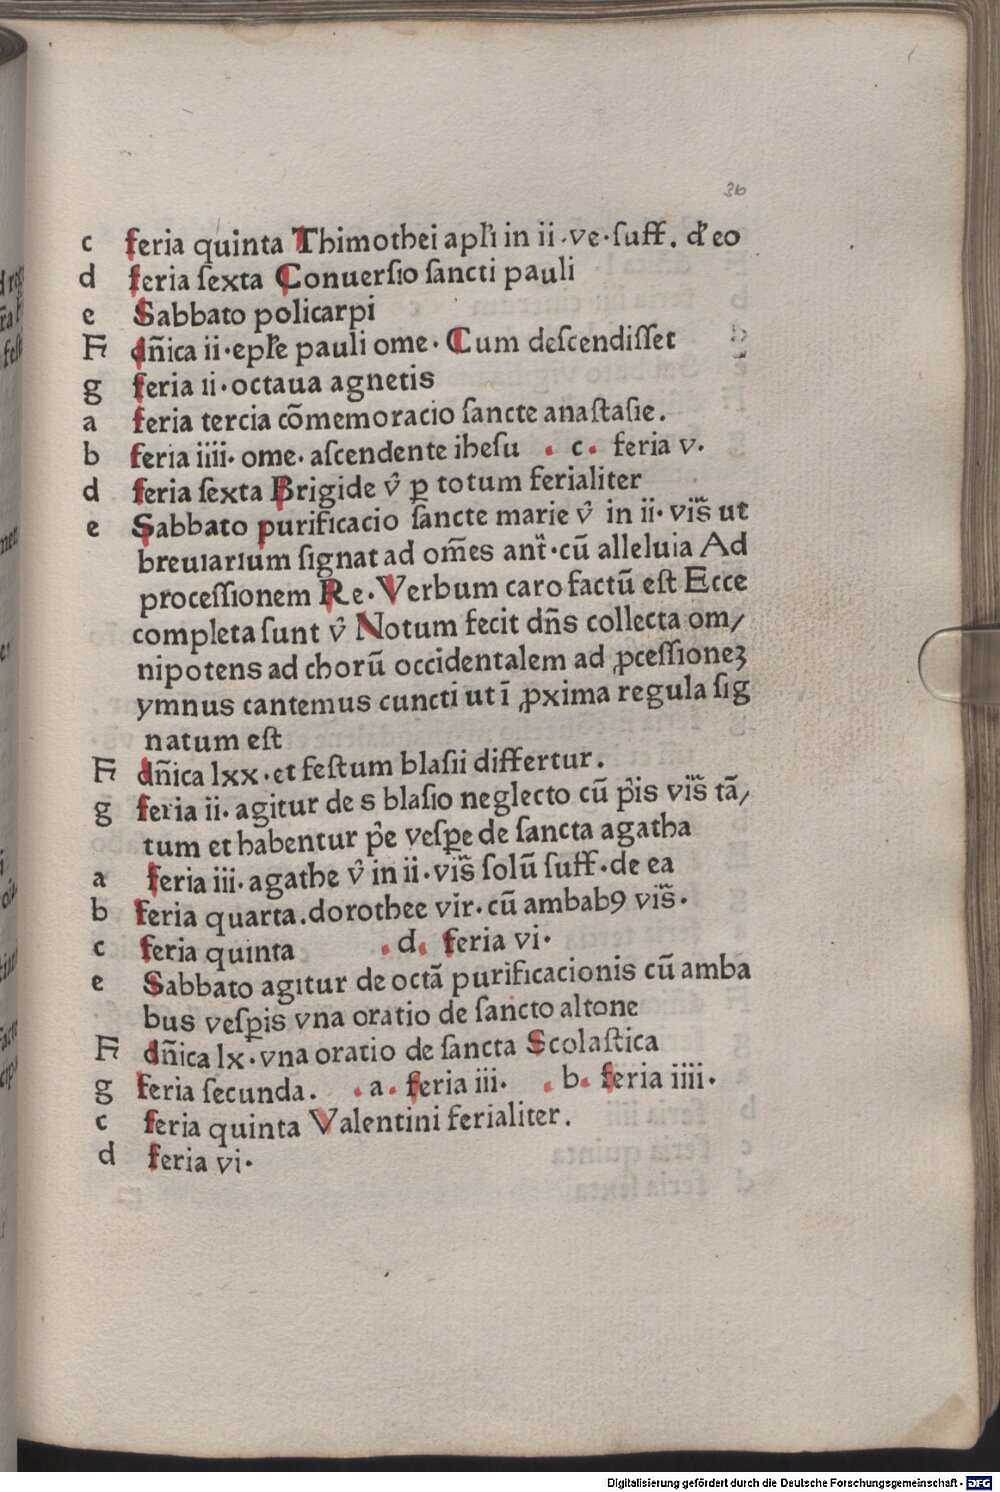 36
c feria quinta Thimothei apl'i in ii·ve·suff. d'eo
d feria sexta Conuersio sancti pauli
e Sabbato policarpi
F dñica ii·epl'e pauli ome· Cum descendisset
g feria ii·octaua agnetis
a feria tercia cõmemoracio sancte anastasie.
b feria iiii· ome· ascendente ihesu · c· feria v·
d feria sexta Brigide v̂ ꝑ totum ferialiter
e Sabbato purificacio sancte marie v̂ in ii· vis̃ ut
breuiarium signat ad om̃es ant̃·cũ alleluia Ad
processionem Re·Verbum caro factũ est Ecce
completa sunt v̂ Notum fecit dñs collecta om/
nipotens ad chorũ occidentalem ad ꝓcessioneꝫ
ymnus cantemus cuncti ut ĩ ꝓxima regula sig
natum est
F dñica lxx·et festum blasii differtur.
g feria ii· agitur de s blasio neglecto cũ p̉is vis̃ tã/
tum et habentur p̉e vesꝑe de sancta agatha
a feria iii· agathe v̂ in ii·vis̃ solũ suff·de ea
b feria quarta.dorothee vir·cũ ambabꝰ vis̃·
c feria quinta ·d· feria vi·
e Sabbato agitur de octã purificacionis cũ amba
bus vesꝑis vna oratio de sancto altone
F dñica lx·vna oratio de sancta Scolastica
g feria secunda. ·a· feria iii· ·b· feria iiii·
c feria quinta Valentini ferialiter.
d feria vi·
Digitalisierung gefördert durch die Deutsche Forschungsgemeinschaft - DFG